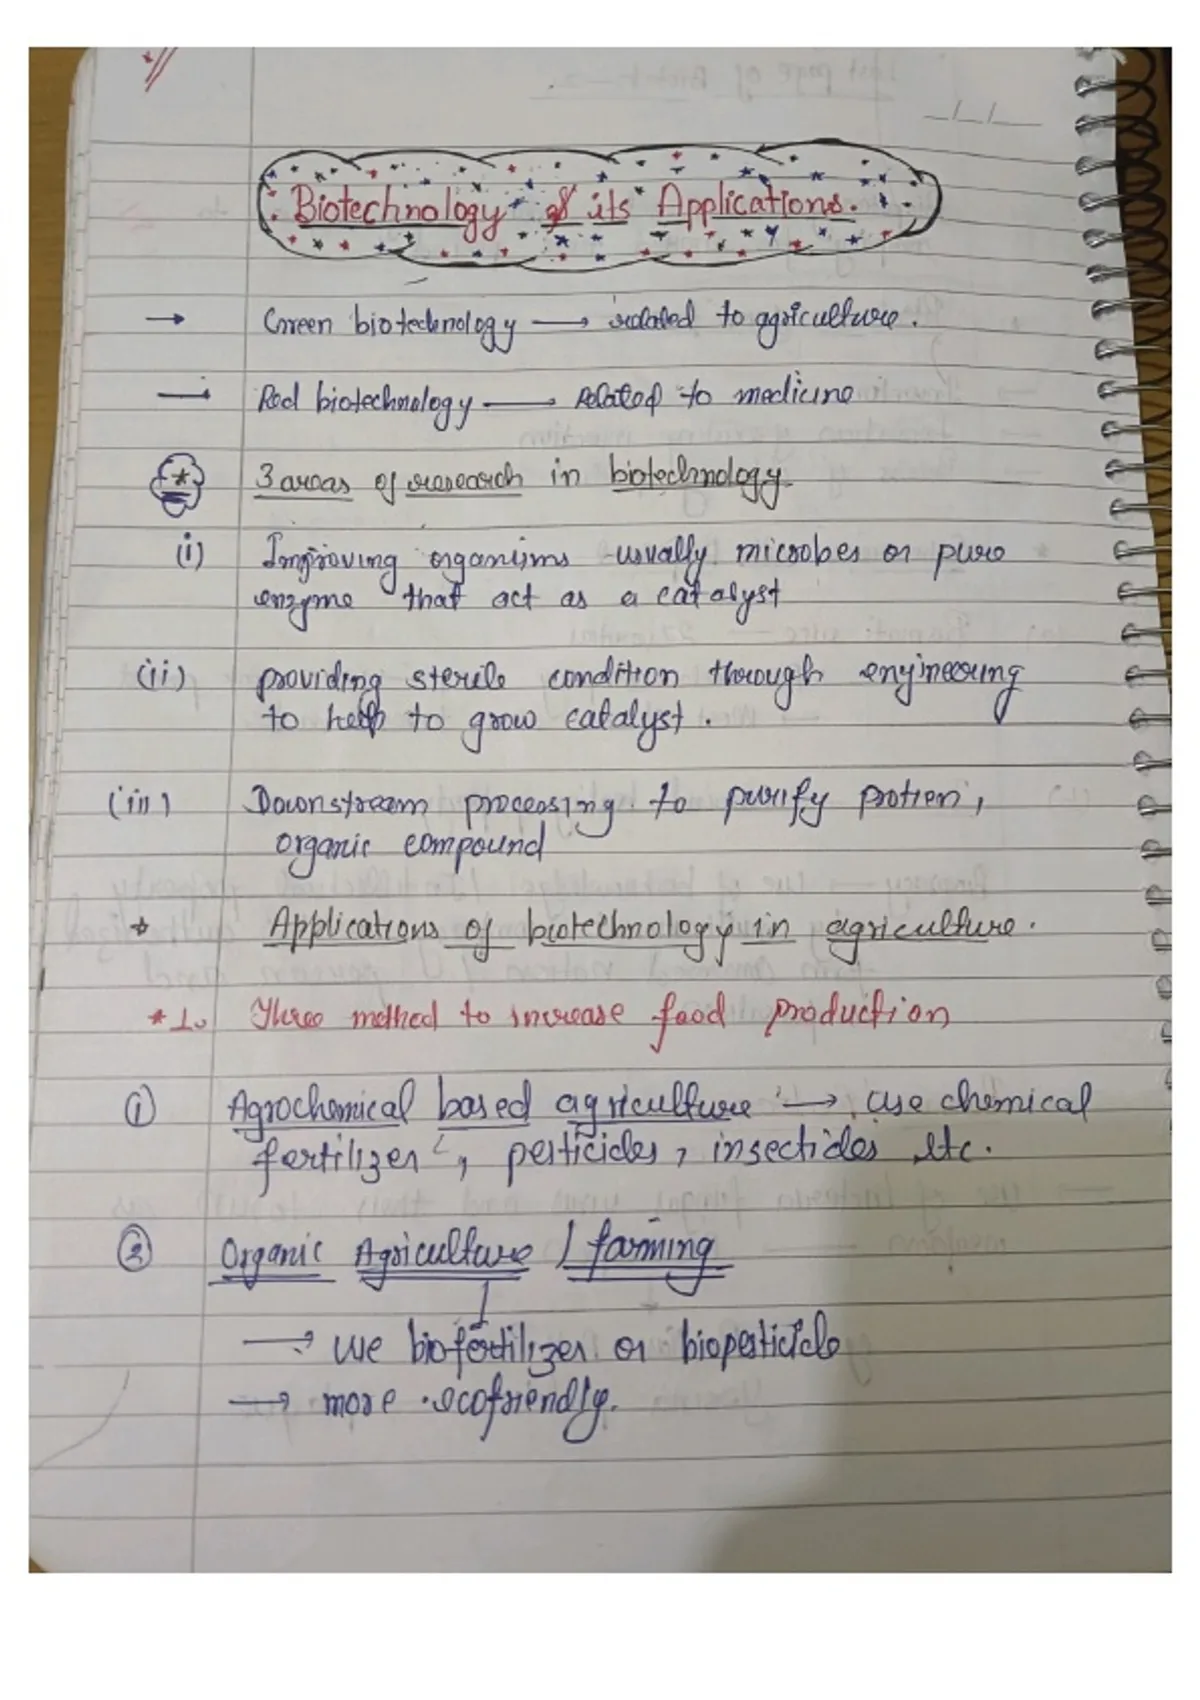 Biotechnology & its Applications.
→ Green biotechnology → related to agriculture.
→ Red biotechnology → Related to medicine
* 3 areas of research in biotechnology
(i) Improving organisms usually microbes or pure
enzyme that act as a catalyst
(ii) providing sterile condition through engineering
to help to grow catalyst.
(iii) Downstream processing to purify protien,
organic compound
* Applications of biotechnology in agriculture.
* 1. Three method to increase food production
① Agrochemical based agriculture → use chemical
fertilizer, pesticides, insecticides etc.
② Organic Agriculture / farming
→ use biofertilizer or biopesticide
→ more ecofriendly.